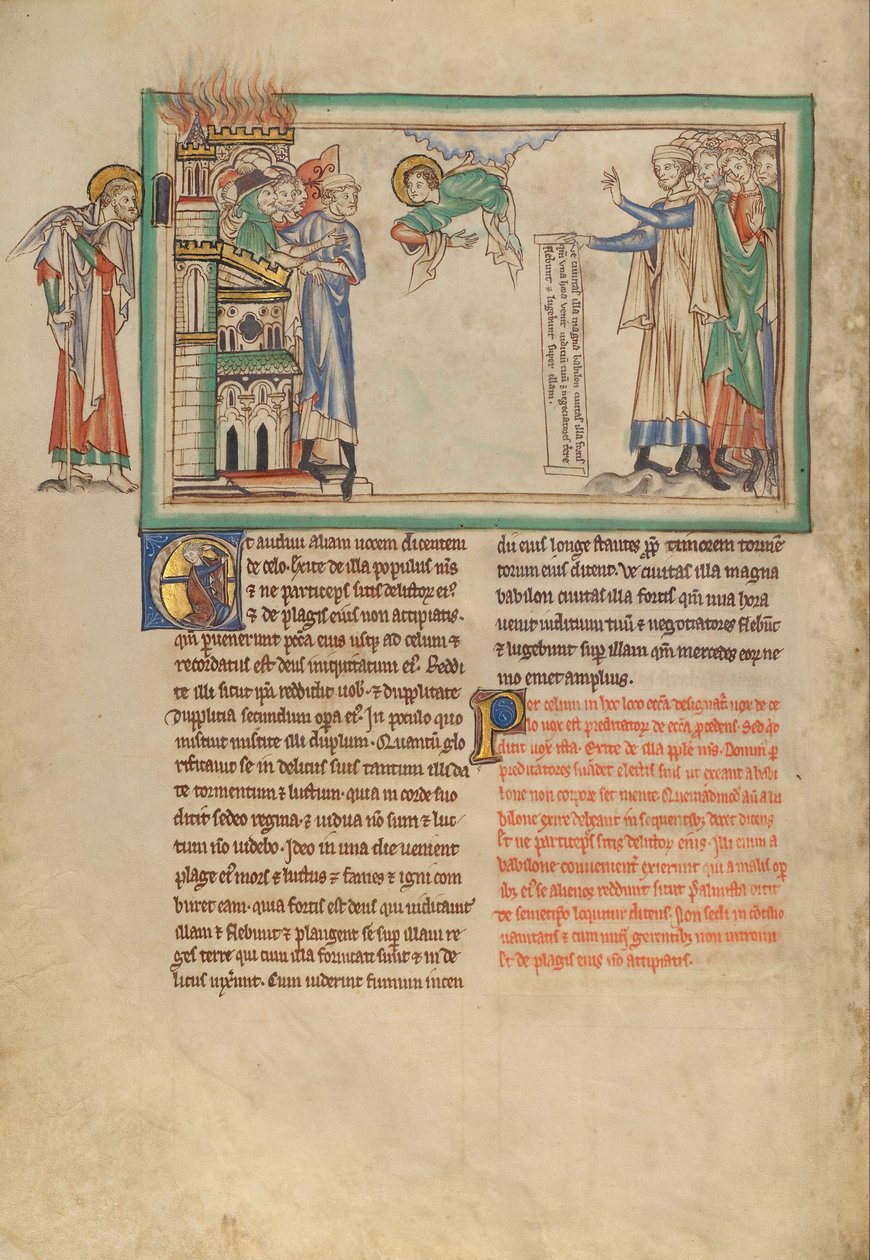 Ve ciuitas illa magna babilon ciuitas illa fortis
qm̄ vna hora venit iudiciū tuū ⁊ negociatores terre
flebunt ⁊ lugebunt super illam.
Et audiui aliam uocem dicentem
de celo. Exite de illa populus m̄s
⁊ ne participes sitis delictorꝝ eiꝰ
⁊ de plagis eius non accipiatis.
qm̄ ꝑuenerunt pccā eius usqꝫ ad celum ⁊
recordatus est deus iniquitatum eiꝰ. Reddi
te illi sicut ip̄a reddidit uob̄. ⁊ dupplicate
dupplicia secundum oꝑa eiꝰ. In poculo quo
miscuit miscite illi duplum. Quantū glo
rificauit se in deliciis suis tantum illi da
te tormentum ⁊ luctum. quia in corde suo
dicit sedeo regina. ⁊ uidua nō sum ⁊ luc
tum nō uidebo. Ideo in una die uenient
plage eiꝰ mors ⁊ luctus ⁊ fames ⁊ igni com
buret eam. quia fortis est deus qui iudicauit
illam ⁊ flebunt ⁊ plangent se suꝑ illam re
ges terre qui cum illa fornicati sunt ⁊ in de
liciis uixerunt. Cum uiderint fumum incen
dii eius longe stantes ꝓpꝉ timorem tormē
torum eius dicent. Ve ciuitas illa magna
babilon ciuitas illa fortis qm̄ una hora
uenit iudicium tuū ⁊ negociatores flebūt
⁊ lugebunt suꝑ illam qm̄ merces eoꝝ ne
mo emet amplius.
Per celum in hoc loco eccā designat᷑ uox de ce
lo uox est predicatoꝝ de eccā ꝓcedens. Sed qd
dicit uox ista. Exite de illa pple m̄s. Domin᷒ ꝑ
predicatores suadet electis suis ut exeant a babi
lone non corꝑe set mente. Quemadmodū aū a ba
bilone exire debeant in sequentibꝫ docet dicens
Et ne participes sitis delictoꝝ eius. Illi enim a
babilone conuenient᷑ exierunt qui a malis oꝑ
ibꝫ eiꝰ se alienos reddunt sicut psalmista
de semetipso loquitur dicens. Non sedi in cōsilio
uanitatis ⁊ cum iniq̄ gerentibꝫ non introibo
Et de plagis eius nō accipiatis.